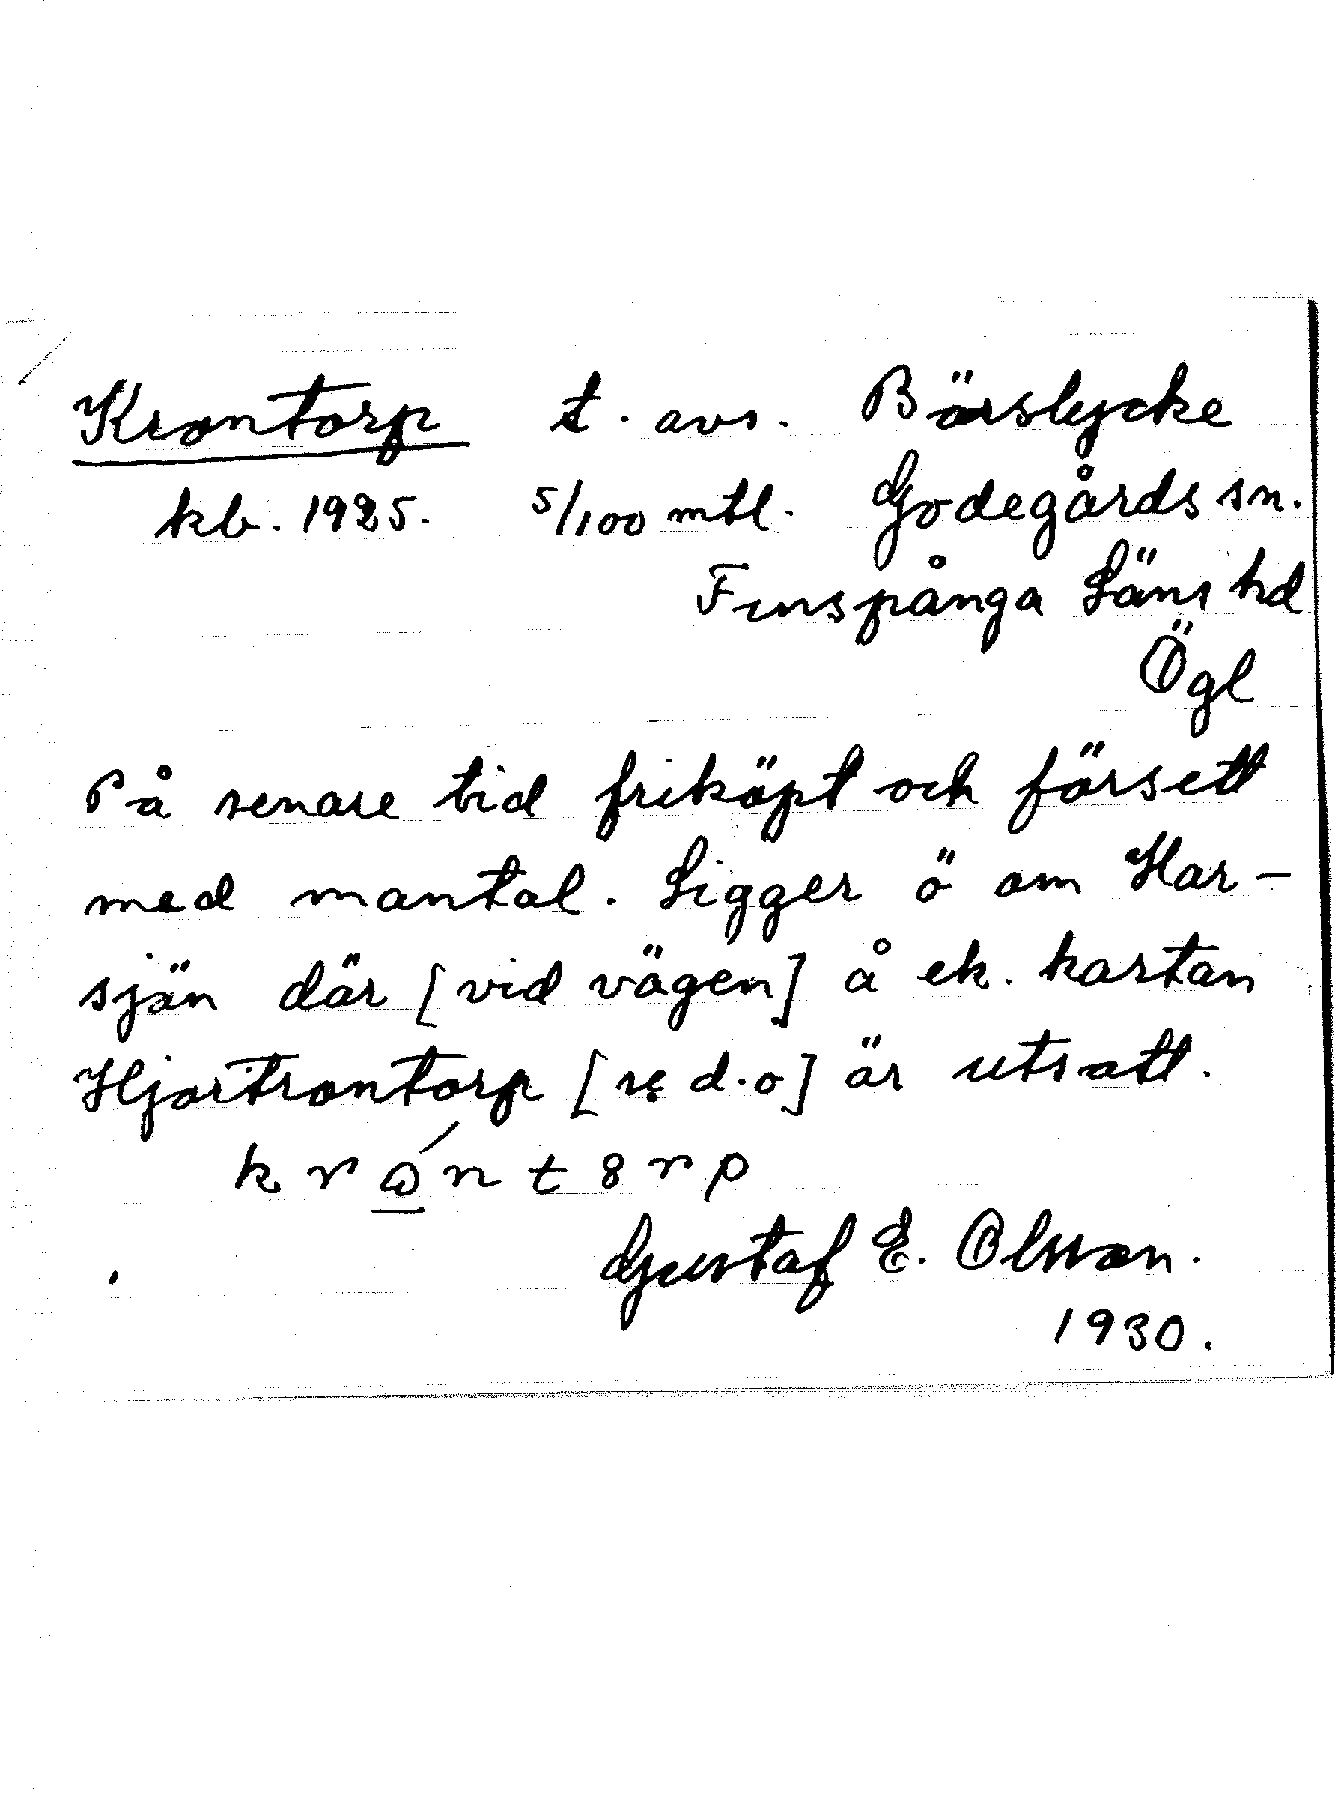 Krontorp t. avs. Börslycke
kb. 1925. 5/100 mtl. Godegårds sn.
Finspånga Läns hd
Ögl
På senare tid friköpt och försett
med mantal. Ligger ö om Har-
sjön där [vid vägen] å ek. kartan
Hjortrontorp [se d.o] är utsatt.
Gustaf E. Olsson.
1930.